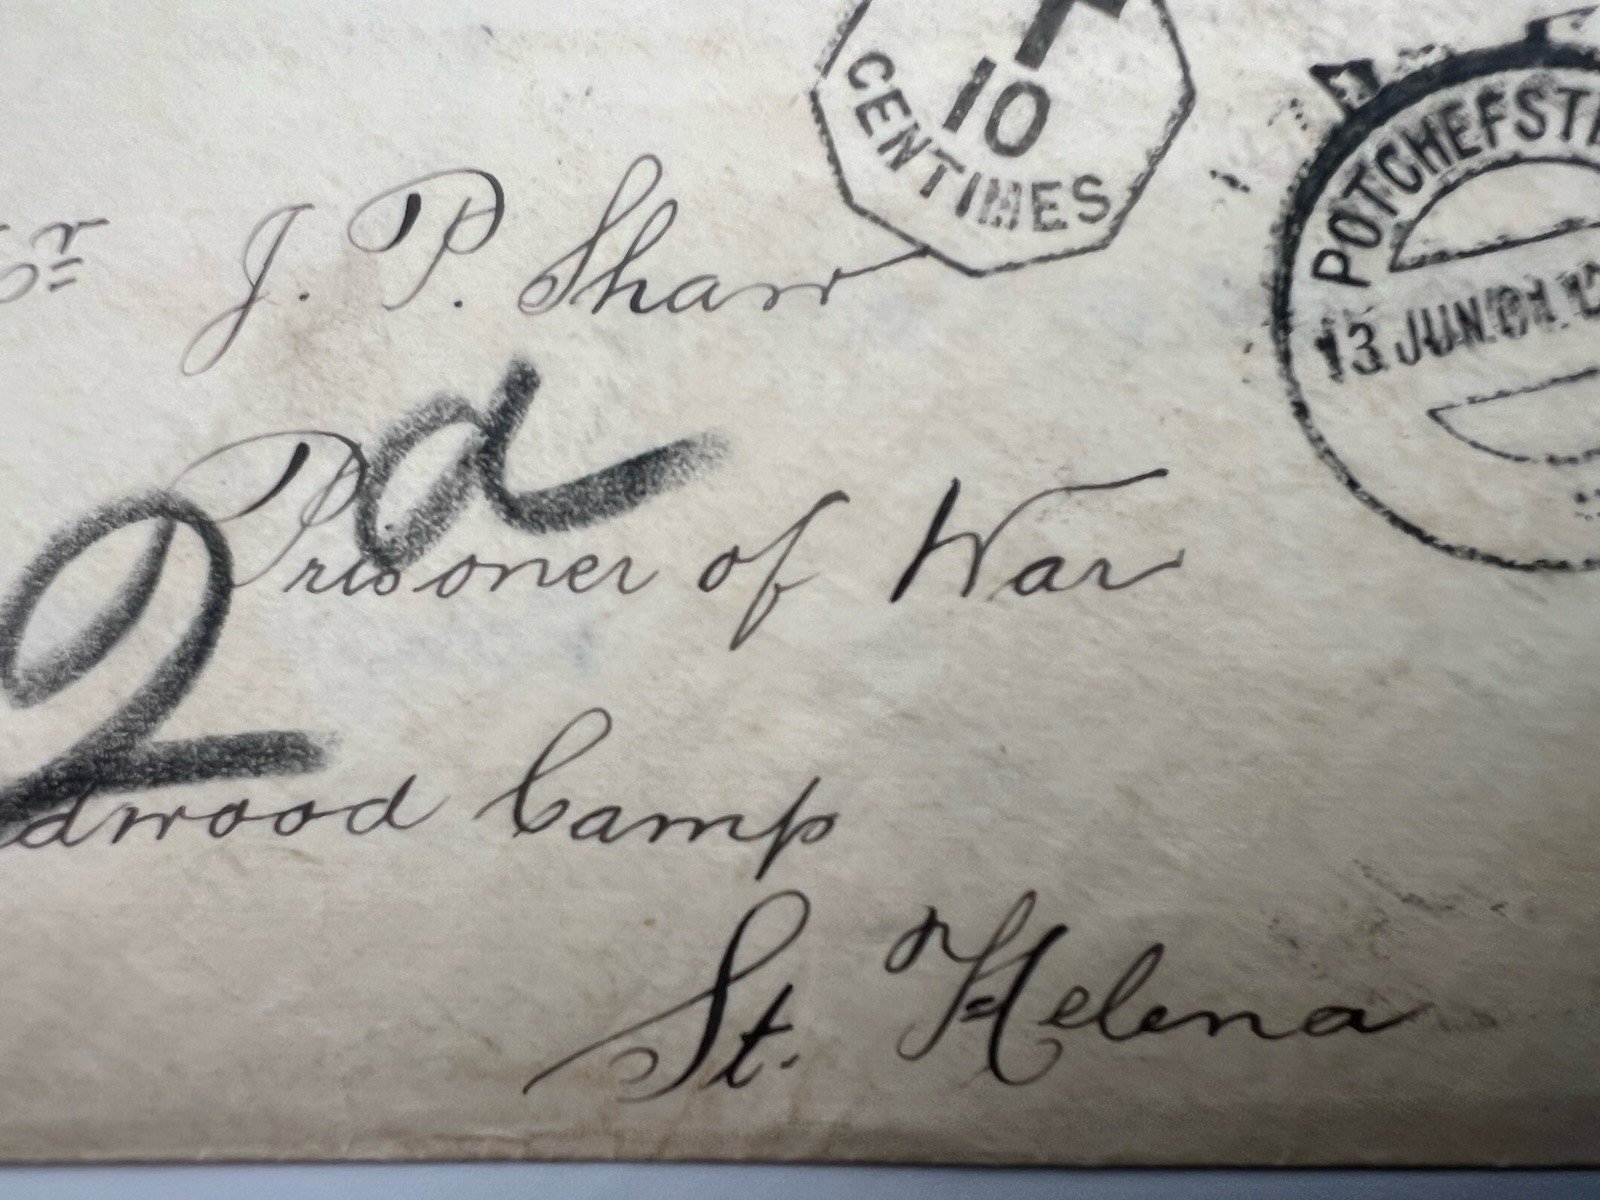 10
CENTIMES
POTCHEFST
13 JUN.01
J. P. Shaw
2d
Prisoner of War
dwood Camp
St. Helena